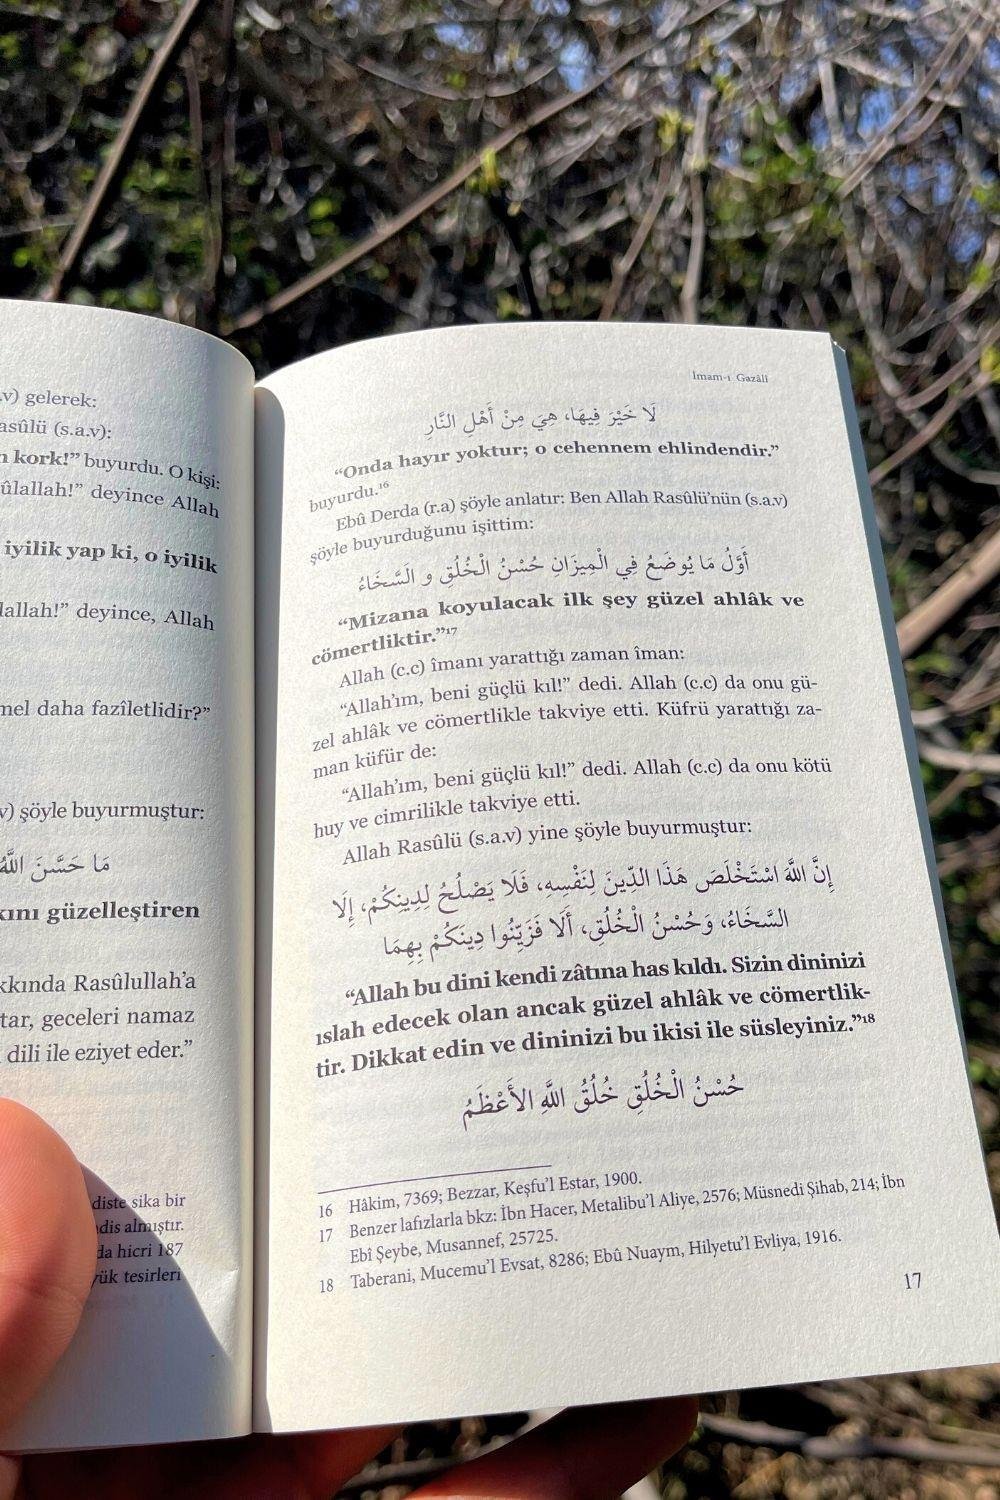 .v) gelerek:
asûlü (s.a.v):
n kork!” buyurdu. O kişi:
ûlallah!” deyince Allah
iyilik yap ki, o iyilik
lallah!” deyince, Allah
mel daha fazîletlidir?”
v) şöyle buyurmuştur:
مَا حَسَّنَ اللَّهُ
kını güzelleştiren
kkında Rasûlullah’a
tar, geceleri namaz
dili ile eziyet eder.”
diste sika bir
dis almıştır.
da hicri 187
yük tesirleri
İmam-ı Gazâlî
لَا خَيْرَ فِيهَا، هِيَ مِنْ أَهْلِ النَّارِ
“Onda hayır yoktur; o cehennem ehlindendir.”
buyurdu.¹⁶
Ebû Derda (r.a) şöyle anlatır: Ben Allah Rasûlü’nün (s.a.v)
şöyle buyurduğunu işittim:
أَوَّلُ مَا يُوضَعُ فِي الْمِيزَانِ حُسْنُ الْخُلُقِ و السَّخَاءُ
“Mizana koyulacak ilk şey güzel ahlâk ve
cömertliktir.”¹⁷
Allah (c.c) îmanı yarattığı zaman îman:
“Allah’ım, beni güçlü kıl!” dedi. Allah (c.c) da onu gü-
zel ahlâk ve cömertlikle takviye etti. Küfrü yarattığı za-
man küfür de:
“Allah’ım, beni güçlü kıl!” dedi. Allah (c.c) da onu kötü
huy ve cimrilikle takviye etti.
Allah Rasûlü (s.a.v) yine şöyle buyurmuştur:
إِنَّ اللَّهَ اسْتَخْلَصَ هَذَا الدِّينَ لِنَفْسِهِ، فَلَا يَصْلُحُ لِدِينِكُمْ، إِلَّا
السَّخَاءُ، وَحُسْنُ الْخُلُقِ، أَلَا فَزَيِّنُوا دِينَكُمْ بِهِمَا
“Allah bu dini kendi zâtına has kıldı. Sizin dininizi
ıslah edecek olan ancak güzel ahlâk ve cömertlik-
tir. Dikkat edin ve dininizi bu ikisi ile süsleyiniz.”¹⁸
حُسْنُ الْخُلُقِ خُلُقُ اللَّهِ الأَعْظَمُ
16 Hâkim, 7369; Bezzar, Keşfu’l Estar, 1900.
17 Benzer lafızlarla bkz: İbn Hacer, Metalibu’l Aliye, 2576; Müsnedi Şihab, 214; İbn
Ebî Şeybe, Musannef, 25725.
18 Taberani, Mucemu’l Evsat, 8286; Ebû Nuaym, Hilyetu’l Evliya, 1916.
17